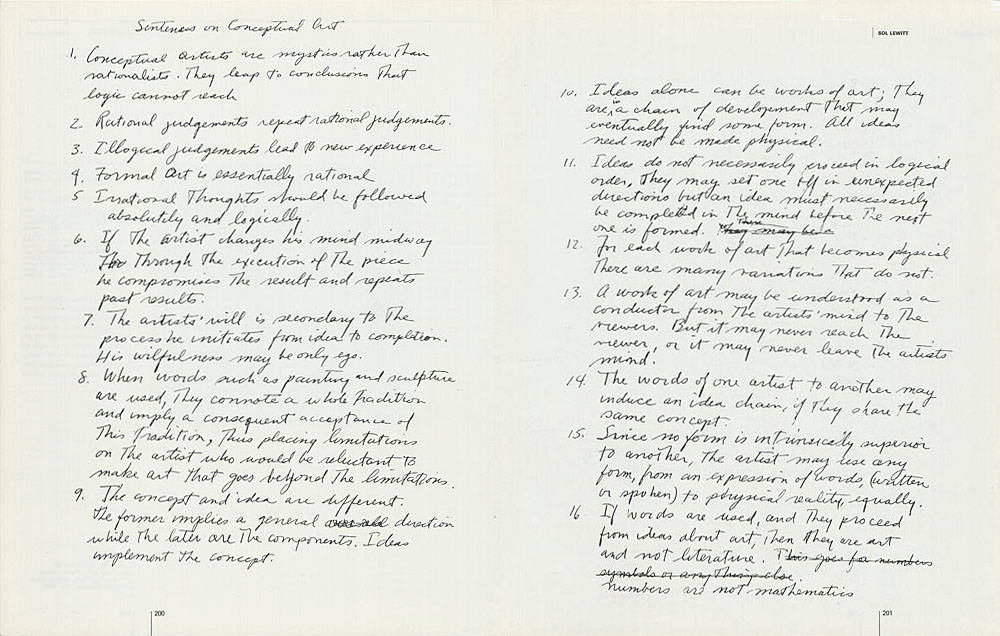 Sentences on Conceptual Art
1. Conceptual Artists are mystics rather Than
rationalists. They leap to conclusions That
logic cannot reach
2. Rational judgements repeat rational judgements.
3. Illogical judgements lead to new experience
4. Formal Art is essentially rational
5 Irrational Thoughts should be followed
absolutely and logically.
6. If The artist changes his mind midway
Through The execution of The piece
he compromises The result and repeats
past results.
7. The artists' will is secondary to The
process he initiates from idea to completion.
His wilfulness may be only ego.
8. When words such as painting and sculpture
are used, They connote a whole Tradition
and imply a consequent acceptance of
This Tradition, Thus placing limitations
on The artist who would be reluctant to
make art That goes beyond The limitations.
9. The concept and idea are different.
The former implies a general direction
while The later are The components. Ideas
implement The concept.
200
SOL LEWITT
10. Ideas alone can be works of art; They
are in a chain of development That may
eventually find some form. All ideas
need not be made physical.
11. Ideas do not necessarily proceed in logical
order, They may set one off in unexpected
directions but an idea must necessarily
be completed in The mind before The next
one is formed. They There may be a
12. For each work of art That becomes physical
There are many variations That do not.
13. A work of art may be understood as a
conductor from The artists' mind to The
viewers. But it may never reach The
viewer, or it may never leave The artists
mind.
14. The words of one artist to another may
induce an idea chain, if They share The
same concept.
15. Since no form is intrinsically superior
to another, The artist may use any
form, from an expression of words, (written
or spoken) to physical reality, equally.
16 If words are used, and They proceed
from ideas about art, Then They are art
and not literature. This goes for numbers
symbols or any Things else.
numbers are not mathematics
201